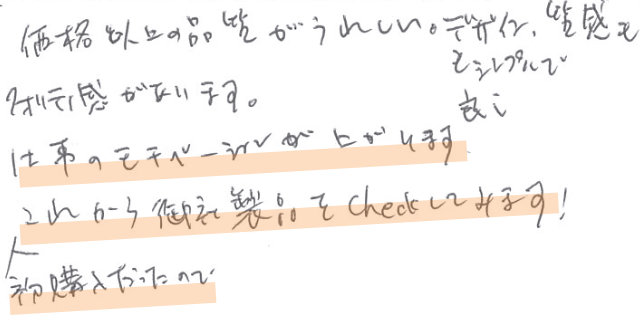 価格以上の品質がうれしい。デザイン、質感も
とシンプルで
良い
クオリティ感があります。
仕事のモチベーションが上がります
これから御社製品をCheckしてみます!
初購入だったので